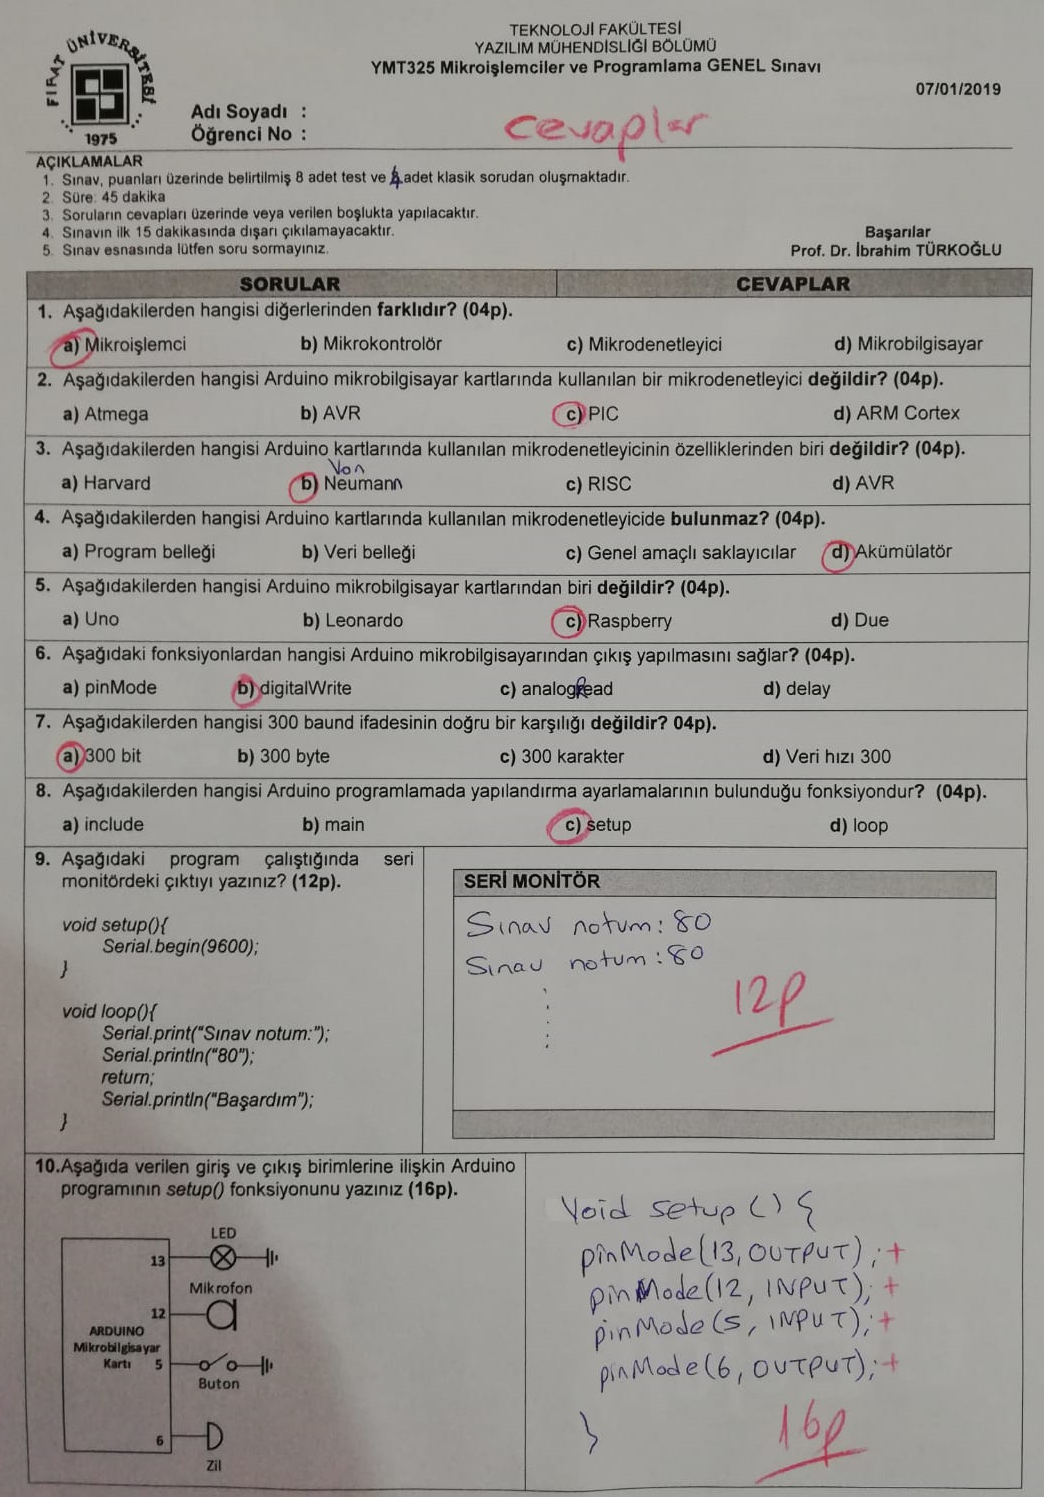 FIRAT ÜNİVERSİTESİ
1975
TEKNOLOJİ FAKÜLTESİ
YAZILIM MÜHENDİSLİĞİ BÖLÜMÜ
YMT325 Mikroişlemciler ve Programlama GENEL Sınavı
07/01/2019
Adı Soyadı :
Öğrenci No :
cevaplar
AÇIKLAMALAR
1. Sınav, puanları üzerinde belirtilmiş 8 adet test ve adet klasik sorudan oluşmaktadır.
2. Süre: 45 dakika
3. Soruların cevapları üzerinde veya verilen boşlukta yapılacaktır.
4. Sınavın ilk 15 dakikasında dışarı çıkılamayacaktır.
5. Sınav esnasında lütfen soru sormayınız.
Başarılar
Prof. Dr. İbrahim TÜRKOĞLU
SORULAR CEVAPLAR
1. Aşağıdakilerden hangisi diğerlerinden farklıdır? (04p).
a) Mikroişlemci b) Mikrokontrolör c) Mikrodenetleyici d) Mikrobilgisayar
2. Aşağıdakilerden hangisi Arduino mikrobilgisayar kartlarında kullanılan bir mikrodenetleyici değildir? (04p).
a) Atmega b) AVR c) PIC d) ARM Cortex
3. Aşağıdakilerden hangisi Arduino kartlarında kullanılan mikrodenetleyicinin özelliklerinden biri değildir? (04p).
Von
a) Harvard b) Neumann c) RISC d) AVR
4. Aşağıdakilerden hangisi Arduino kartlarında kullanılan mikrodenetleyicide bulunmaz? (04p).
a) Program belleği b) Veri belleği c) Genel amaçlı saklayıcılar d) Akümülatör
5. Aşağıdakilerden hangisi Arduino mikrobilgisayar kartlarından biri değildir? (04p).
a) Uno b) Leonardo c) Raspberry d) Due
6. Aşağıdaki fonksiyonlardan hangisi Arduino mikrobilgisayarından çıkış yapılmasını sağlar? (04p).
a) pinMode b) digitalWrite c) analogRead d) delay
7. Aşağıdakilerden hangisi 300 baund ifadesinin doğru bir karşılığı değildir? 04p).
a) 300 bit b) 300 byte c) 300 karakter d) Veri hızı 300
8. Aşağıdakilerden hangisi Arduino programlamada yapılandırma ayarlamalarının bulunduğu fonksiyondur? (04p).
a) include b) main c) setup d) loop
9. Aşağıdaki program çalıştığında seri
monitördeki çıktıyı yazınız? (12p).
void setup(){
Serial.begin(9600);
}
void loop(){
Serial.print("Sınav notum:");
Serial.println("80");
return;
Serial.println("Başardım");
}
SERİ MONİTÖR
Sınav notum: 80
Sınav notum: 80
12p
10.Aşağıda verilen giriş ve çıkış birimlerine ilişkin Arduino
programının setup() fonksiyonunu yazınız (16p).
LED
13
Mikrofon
12
ARDUINO
Mikrobilgisayar
Kartı 5
Buton
6
Zil
Void setup () {
pinMode(13, OUTPUT); +
pinMode(12, INPUT); +
pinMode(5, INPUT); +
pinMode(6, OUTPUT); +
}
16p